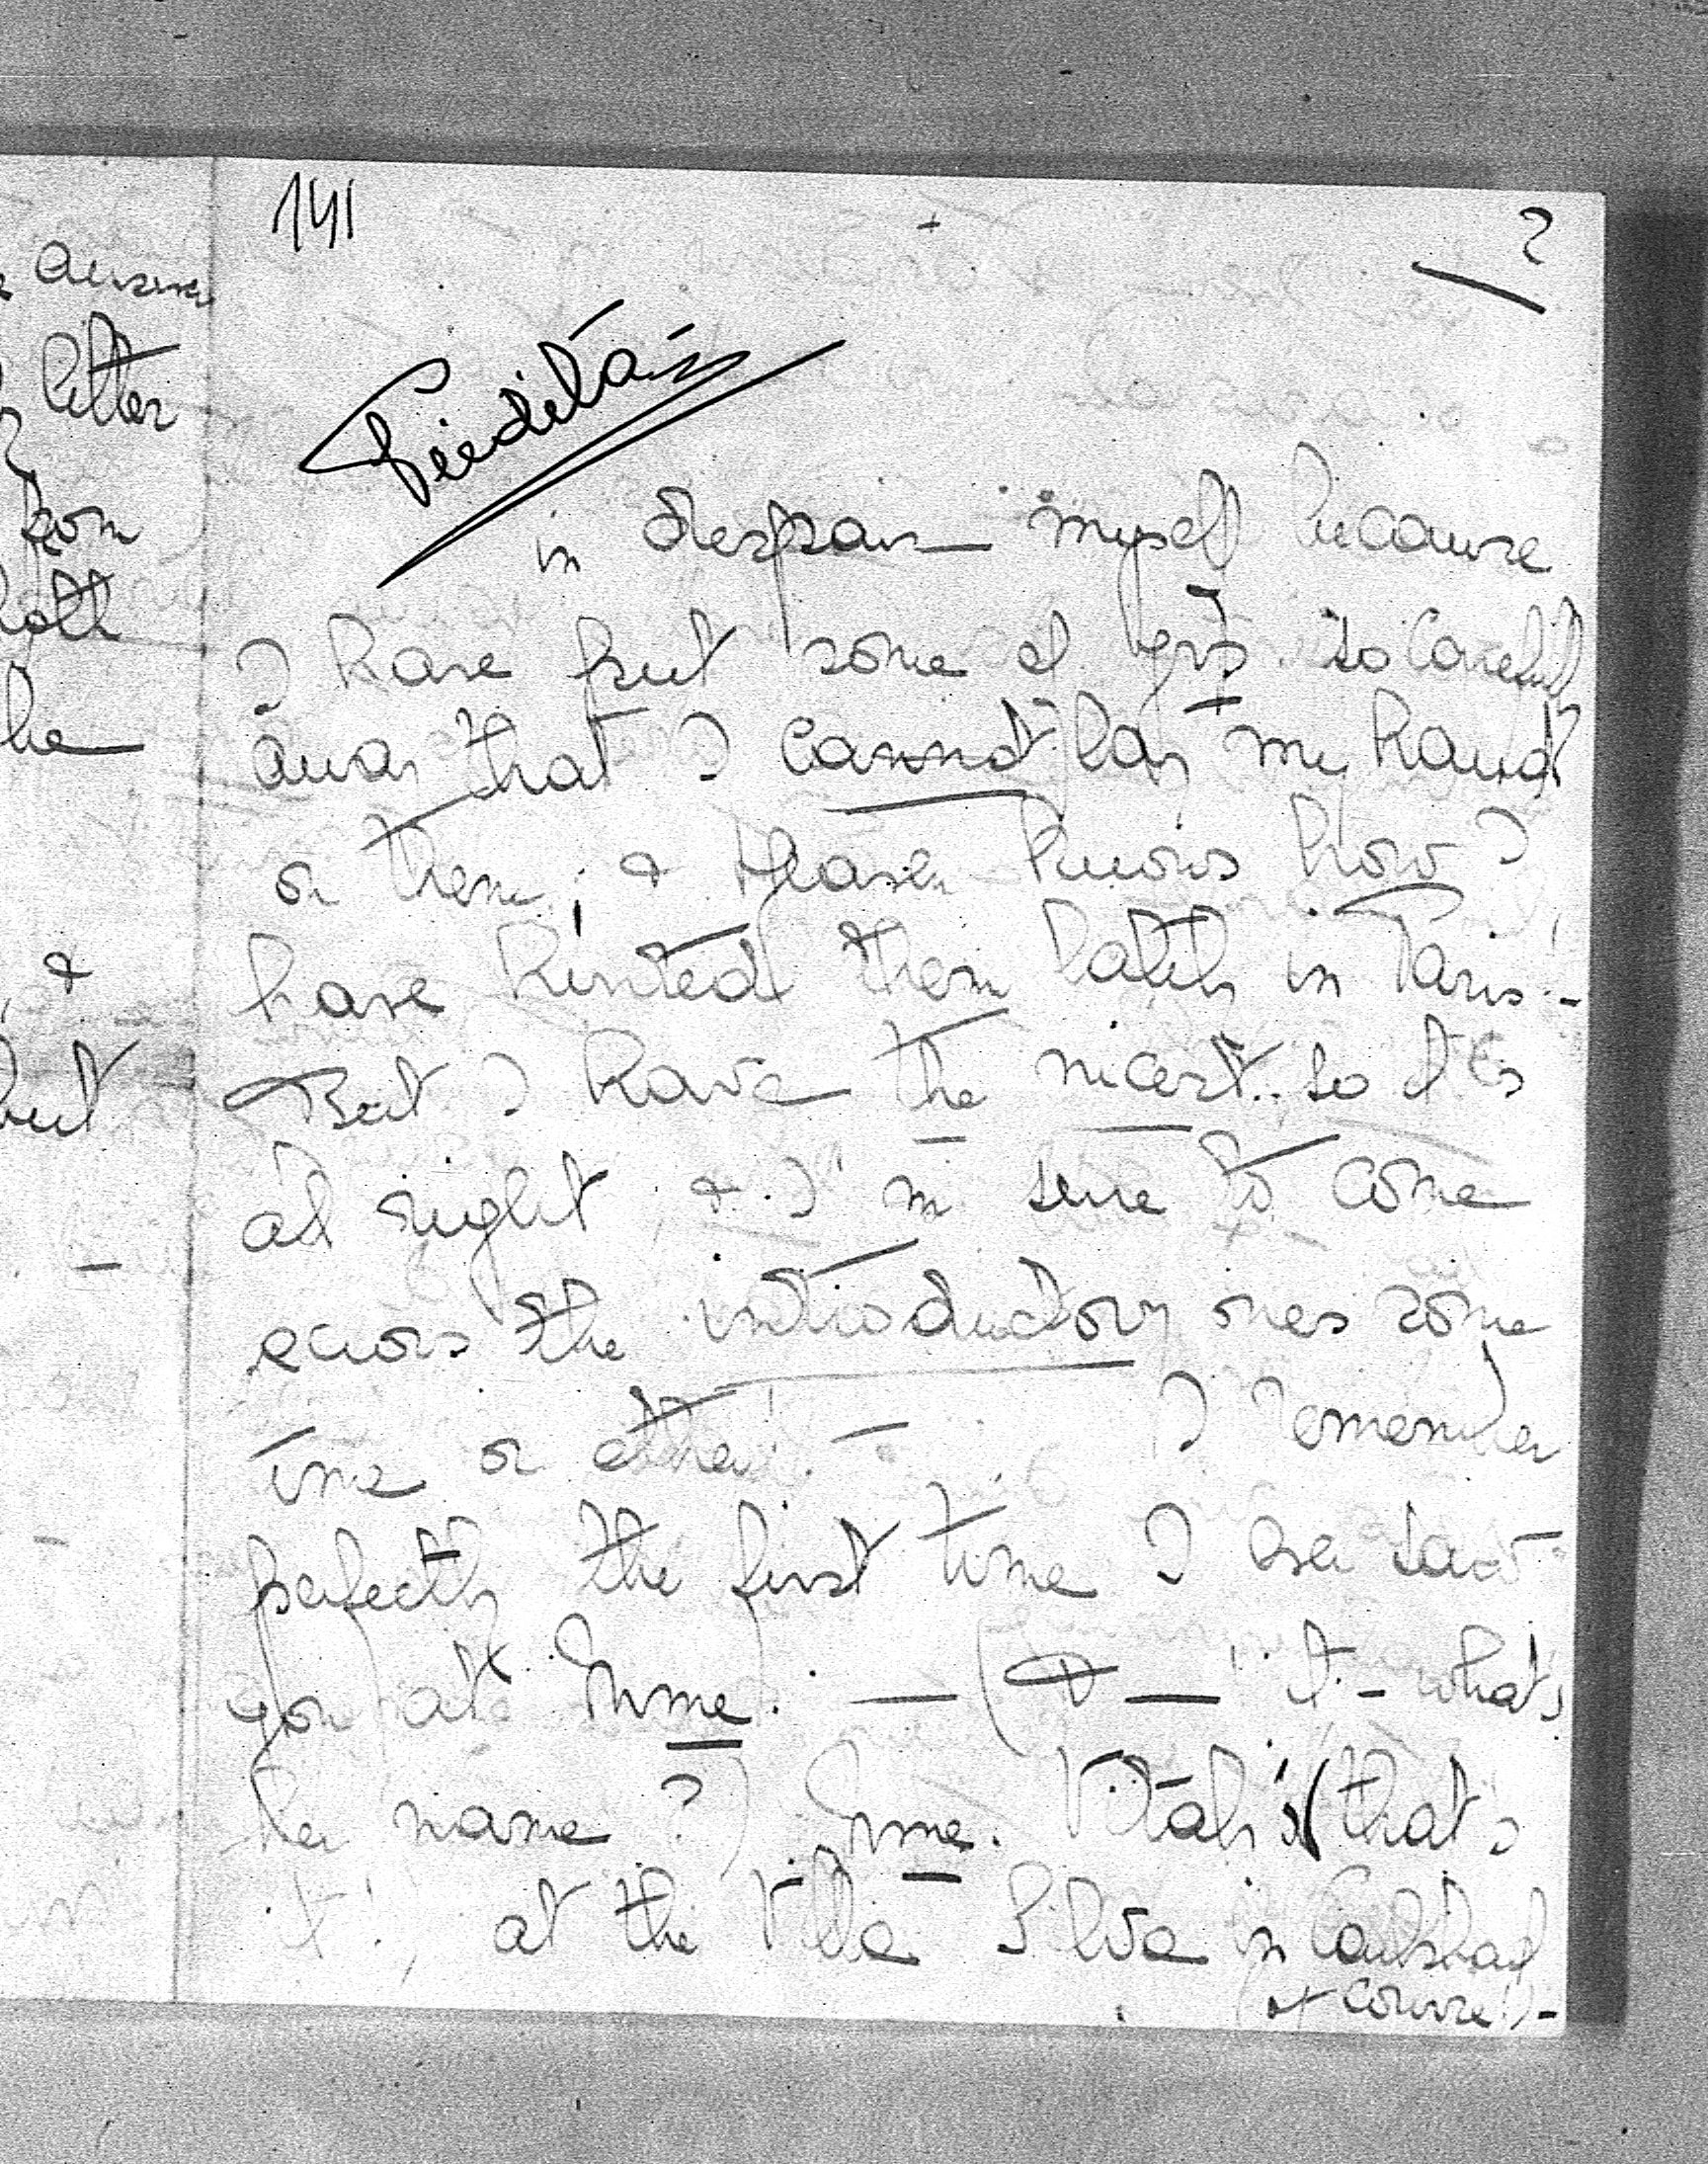 answer
letter
from
both
he
&
but
141
2
in despair myself because
I have put some of yrs so carefully
away that I cannot lay my hands
on them, & Heaven knows how I
have hunted them lately in Paris. -
But I have the nicest.. so it is
all right & I'm sure to come
across the introductory ones some
time or other. — I remember
perfectly the first time I ever saw
you at Mme. — ( — it - what's
her name?) Mme. Vitali's (that's
it!, at the Villa Silva in Carlsbad
(of course!) -